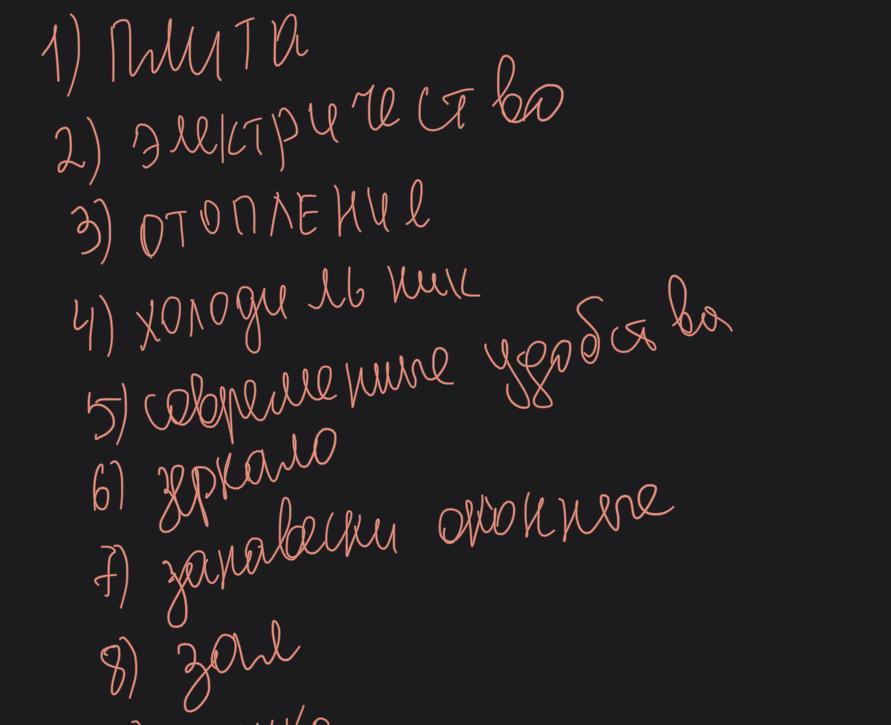 1) плита
2) электричество
3) отопление
4) холодильник
5) современные удобства
6) зеркало
7) занавески оконные
8) зал